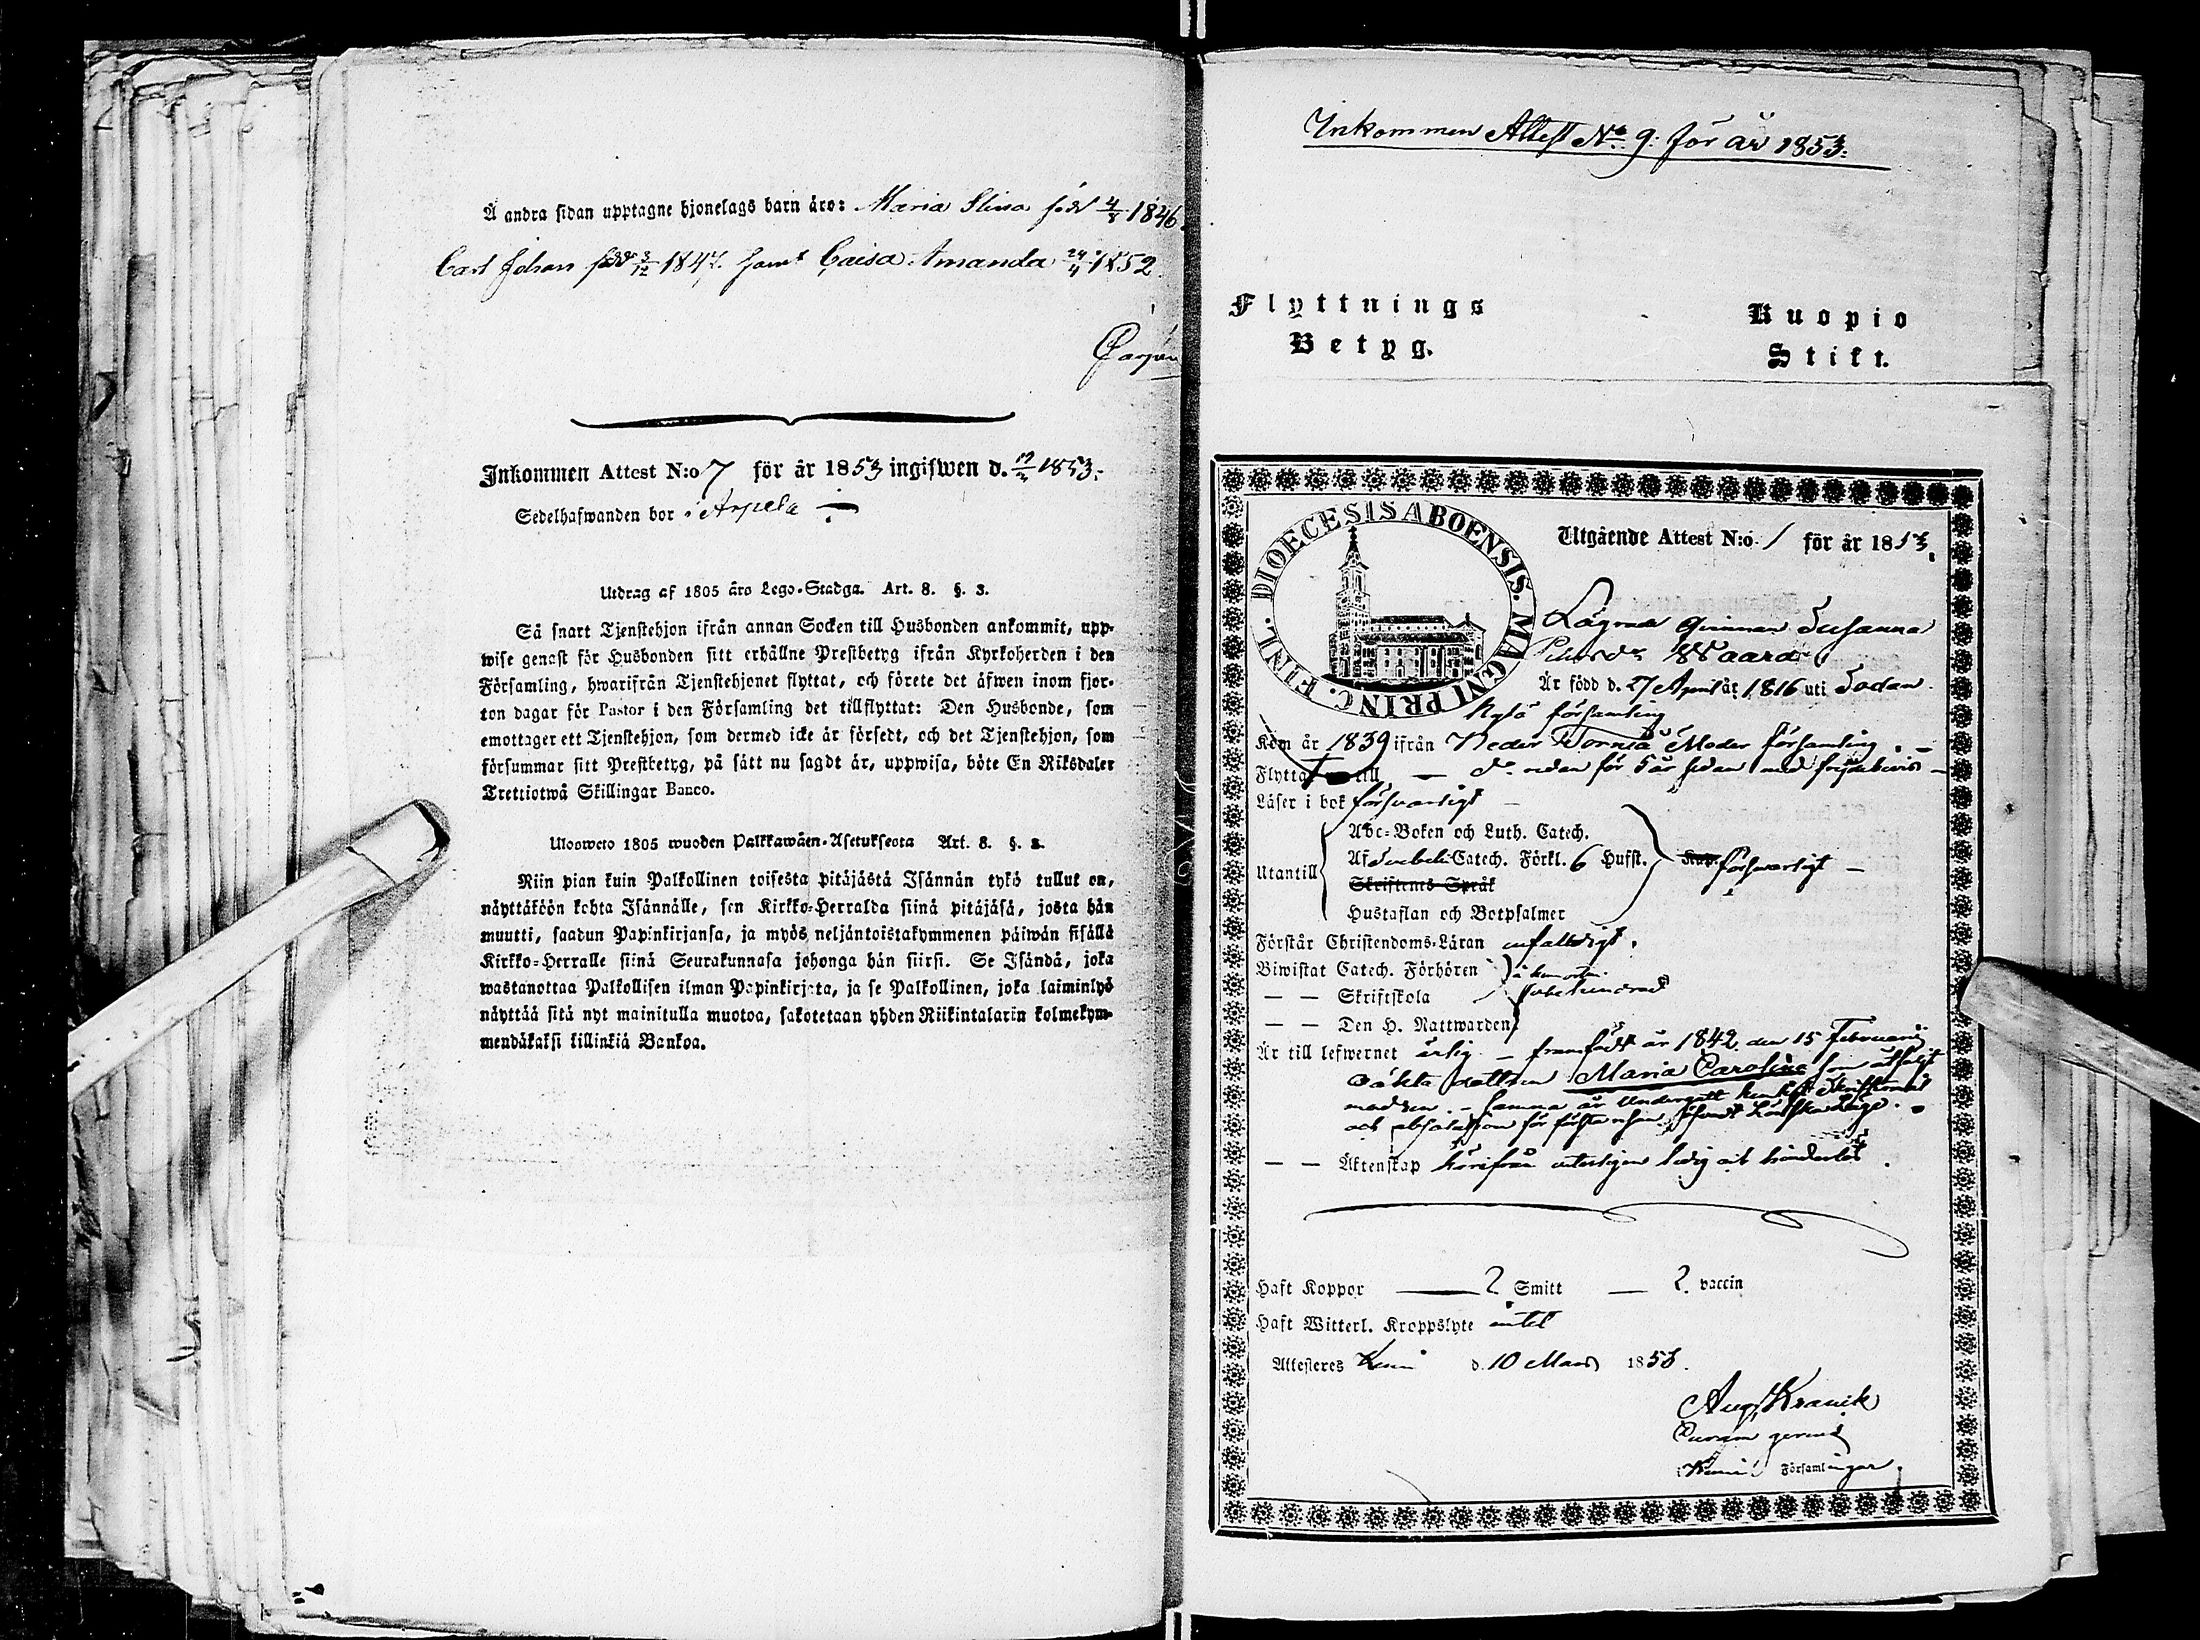 Å andra sidan upptagne hjonelags barn äro: Maria Stina född 4/8 1846.
Carl Johan född 3/12 1847. samt Caisa Amanda 24/4 1852.
Inkommen Attest N:o 7 för år 1853 ingifwen d. 1853.
Sedelhafwanden bor i Arpela
Utdrag af 1805 års Lego-Stadga. Art. 8. §. 3.
Så snart Tjenstehjon ifrån annan Socken till Husbonden ankommit, upp-
wise genast för Husbonden sitt erhållne Prestbetyg ifrån Kyrkoherden i den
Församling, hwarifrån Tjenstehjonet flyttat, och förete det äfwen inom fjor-
ton dagar för Pastor i den Församling det tillflyttat: Den Husbonde, som
emottager ett Tjenstehjon, som dermed icke är försedt, och det Tjenstehjon, som
försummar sitt Prestbetyg, på sätt nu sagdt är, uppwisa, böte En Riksdaler
Trettiotwå Skillingar Banco.
Uloosweto 1805 wuoden Palkkawäen-Asetuksesta Art. 8. §. 3.
Niin pian kuin Palkollinen toisesta pitäjästä Isännän tykö tullut on,
näyttäköön kohta Isännälle, sen Kirkko-Herralda siinä pitäjäsä, josta hän
muutti, saadun Papinkirjansa, ja myös neljäntoistakymmenen päiwän sisällä
Kirkko-Herralle siinä Seurakunnasa johonga hän siirsi. Se Isändä, joka
wastanottaa Palkollisen ilman Papinkirjata, ja se Palkollinen, joka laiminlyö
näyttää sitä nyt mainitulla muotoa, sakotetaan yhden Riikintalarin kolmekym-
mendäkaksi killinkiä Bankoa.
Inkommen Attest No. 9. för år 1853.
Flyttnings Kuopio
Betyg. Stift.
DIOECESIS ABOENSIS. MAGNI PRINC. FINL.
Utgående Attest N:o 1 för år 1853.
Lägrade Qvinnan Susanna
Waara
Är född d. 27 April år 1816 uti Sodan
kylä församling
Kom år 1839 ifrån Neder Torneå Moder församling.
Flyttat till för 5 år sedan med
Läser i bok försvarligt
Utantill
Abc-Boken och Luth. Catech.
Af Svebelii Catech. Förkl. 6 Hufst. försvarligt
Skriftenes Språk
Hustaflan och Botpsalmer
Förstår Christendoms-Läran enfaldigt.
Biwistat Catech. Förhören
— — Skriftskola
— — Den H. Nattwarden
Är till lefwernet ärlig - framfödt år 1842 den 15 Februarii
oäkta dottren Maria Carolina som åtföljt
modren. - Samma är undergått
och absolution för
— — Äktenskap härifrån veterligen ledig och hinderlös.
Haft Koppor — 2 Smitt — 2. vaccin
Haft Witterl. Kroppslyte intet
Attesteres Kemi d. 10 Mars 1853.
Aug. Kranck
Curam gerens
Kemi Församlingar.